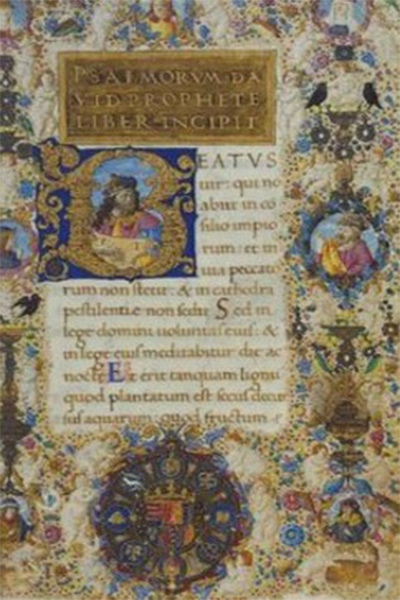 PSALMORVM·DA
VID PROPHETE
LIBER·INCIPIT
BEATVS
uir: qui no
abiit in co
silio impio
rum: et in
uia peccato
rum non stetit: & in cathedra
pestilentie non sedit Sed in
lege domini voluntas eius: &
in lege eius meditabitur die ac
nocte Et erit tanquam lignu
quod plantatum est secus decur
sus aquarum: quod fructum